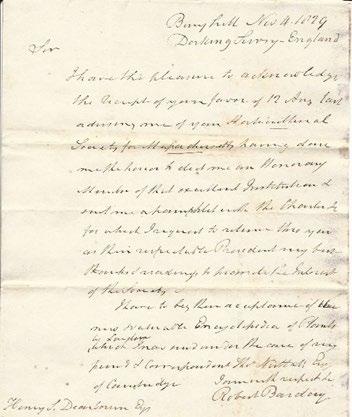 Buryhill Nov 4. 1829
Dorking Surry - England
Sir
I have the pleasure to acknowledge
the receipt of your favor of 12 Aug last
advising me of your Horticultural
Society for Massachusetts having done
me the honor to elect me an Honorary
Member of that excellent Institution &
sent me a pamphlet with the Charter &c
for which I request to return thro you
as their respectable President my best
thanks & readiness to promote the Interest
of the Society
I have to beg their acceptance of the
new valuable Encyclopedia of Plants
by Loudon
which I now send under the care of my
friend & Correspondent Thos Nuttall Esq
of Cambridge
I am with respect &c
Robert Barclay
Henry S. Dearborn Esq